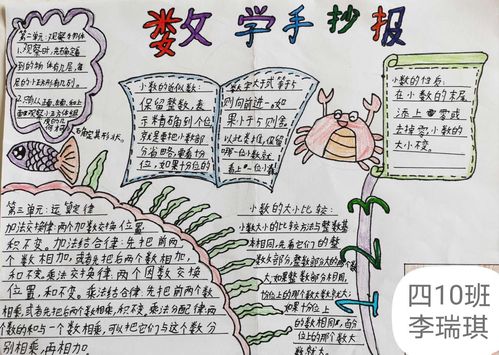 数学手抄报
第二单元:观察物体
1.观察时,先确定看
到的物体有几层,每
层的小正方形有几列。
小数的近似数:
保留整数,表
示精确到个位
就是要把小数部
分省略,要看十分
位,如果十分位的
数字大于或等于5
则向前进一,如
果小于5则舍。
以此类推,保留到
哪一位小数就
小数的性质:
在小数的末尾
添上零或
去掉零,小数的
大小不变。
第三单元:运算定律
加法交换律:两个加数交换位置,
和不变。加法结合律:先把前两
个数相加,或者先把后两个数相加,
和不变。乘法交换律:两个因数交换
位置,和不变。乘法结合律:先把前两个数
相乘,或者先把后两个数相乘,积不变。乘法分配律:两
个数的和与一个数相乘,可以把它们与这个数分
别相乘,再相加。
小数的大小比较:
小数大小的比较方法与整数基
本相同,
数部分,整数部分大的那个数
大;如果整数部分相同,
十分位上的那个数大数就大;
如果十分位上
的数相同,
的那个数大
1
2
3
四10班
李瑞琪